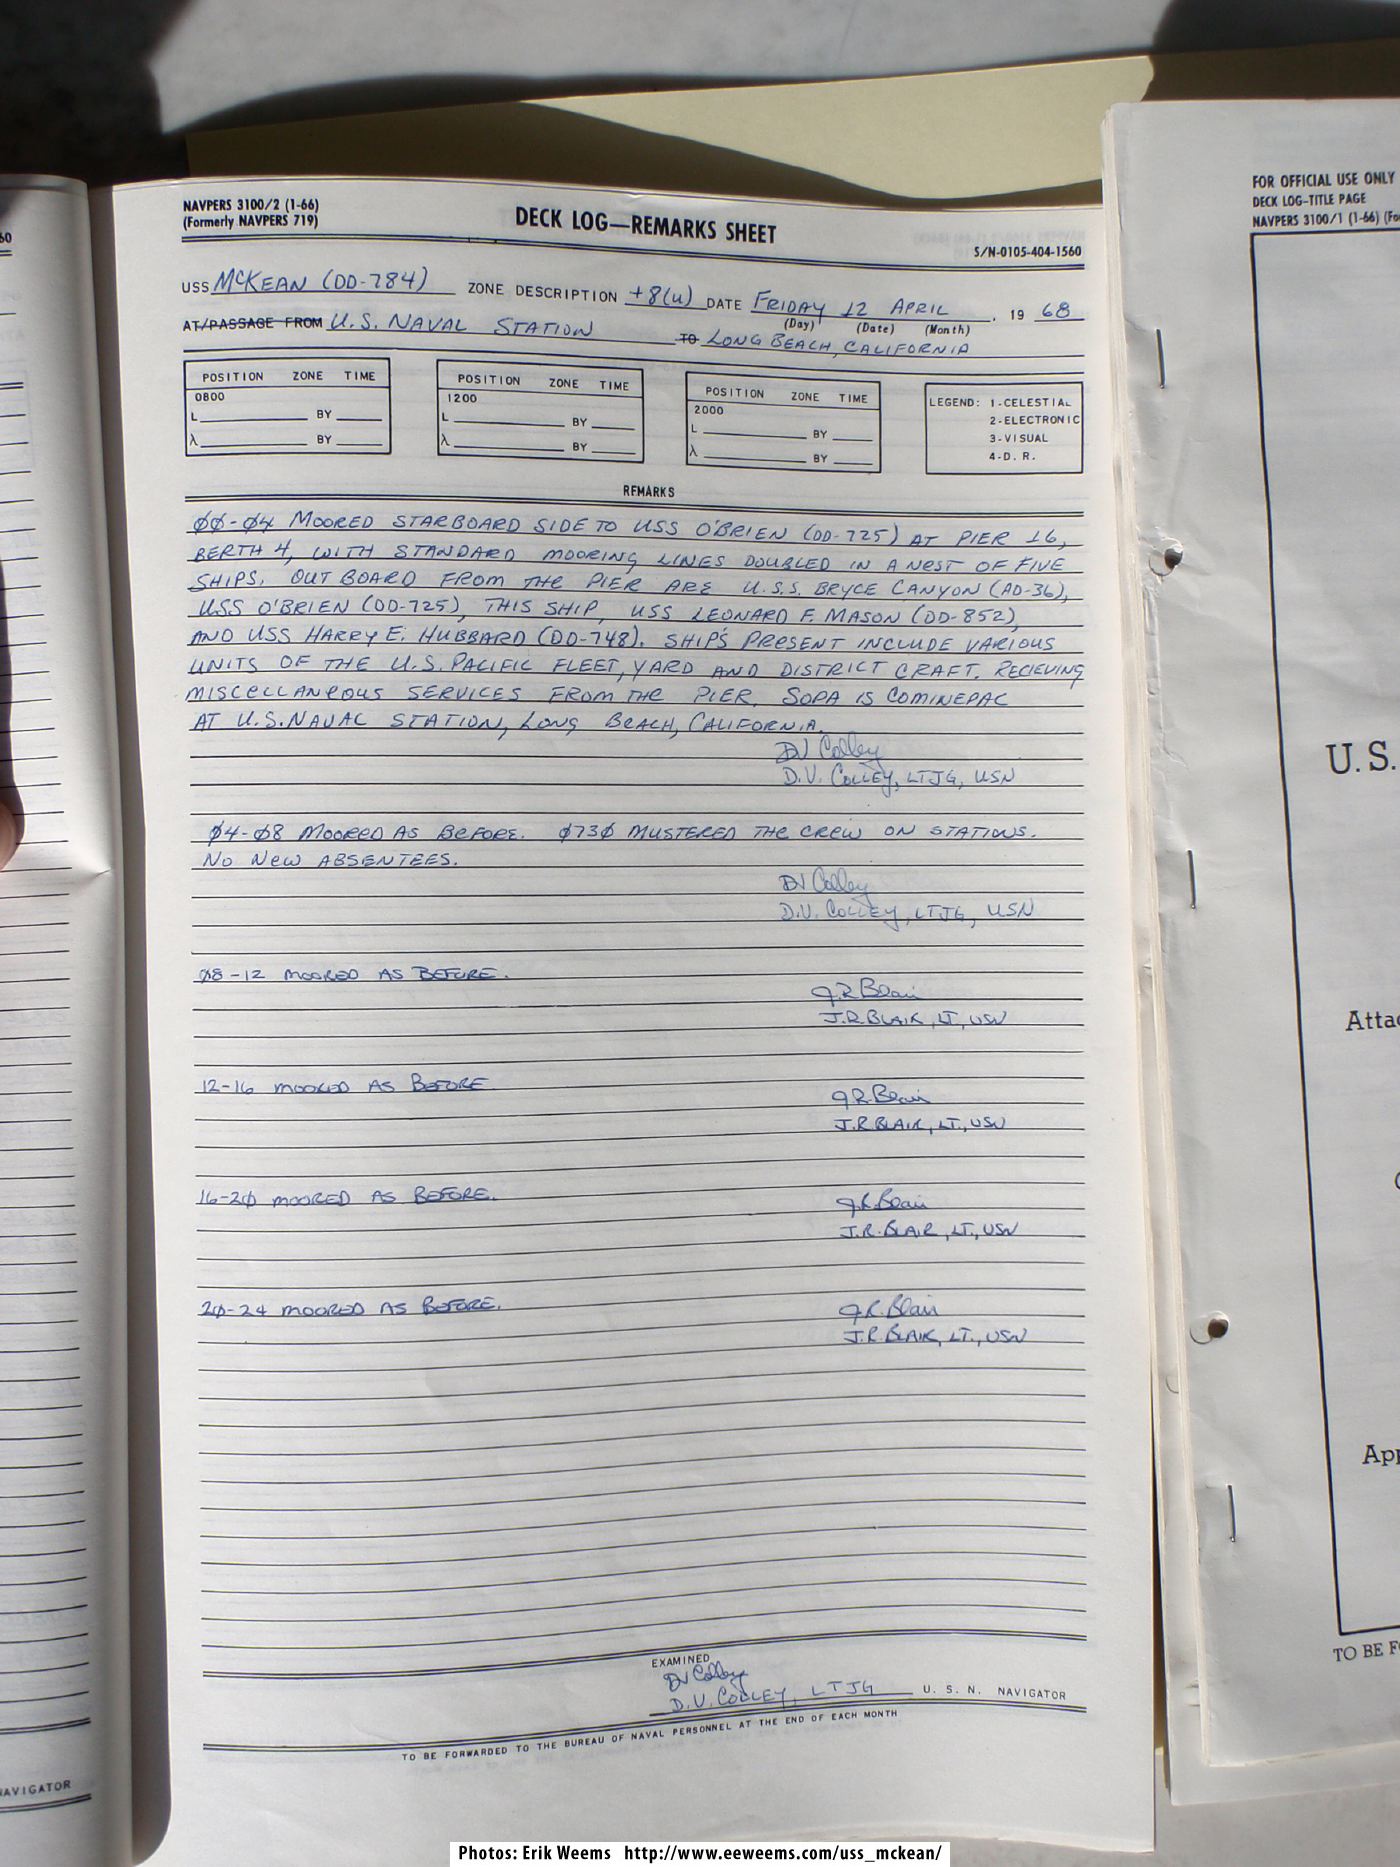 60
NAVIGATOR
NAVPERS 3100/2 (1-66)
(Formerly NAVPERS 719)
DECK LOG—REMARKS SHEET
S/N-0105-404-1560
USS McKEAN (DD-784) ZONE DESCRIPTION +8(U) DATE FRIDAY 12 APRIL , 19 68
(Day) (Date) (Month)
AT/PASSAGE FROM U.S. NAVAL STATION TO LONG BEACH, CALIFORNIA
POSITION ZONE TIME
0800
L BY
λ BY
POSITION ZONE TIME
1200
L BY
λ BY
POSITION ZONE TIME
2000
L BY
λ BY
LEGEND: 1-CELESTIAL
2-ELECTRONIC
3-VISUAL
4-D. R.
REMARKS
ØØ-Ø4 MOORED STARBOARD SIDE TO USS O'BRIEN (DD-725) AT PIER 16,
BERTH 4, WITH STANDARD MOORING LINES DOUBLED IN A NEST OF FIVE
SHIPS. OUT BOARD FROM THE PIER ARE U.S.S. BRYCE CANYON (AD-36),
USS O'BRIEN (DD-725), THIS SHIP, USS LEONARD F. MASON (DD-852),
AND USS HARRY E. HUBBARD (DD-748). SHIP'S PRESENT INCLUDE VARIOUS
UNITS OF THE U.S. PACIFIC FLEET, YARD AND DISTRICT CRAFT. RECIEVING
MISCELLANEOUS SERVICES FROM THE PIER. SOPA IS COMINEPAC
AT U.S. NAVAL STATION, LONG BEACH, CALIFORNIA.
DV Colley
D.V. COLLEY, LTJG, USN
Ø4-Ø8 MOORED AS BEFORE. Ø73Ø MUSTERED THE CREW ON STATIONS.
NO NEW ABSENTEES.
DV Colley
D.V. COLLEY, LTJG, USN
Ø8-12 MOORED AS BEFORE.
J.R. Blair
J.R. BLAIR, LT., USN
12-16 MOORED AS BEFORE
J.R. Blair
J.R. BLAIR, LT., USN
16-2Ø MOORED AS BEFORE.
J.R. Blair
J.R. BLAIR, LT., USN
2Ø-24 MOORED AS BEFORE.
J.R. Blair
J.R. BLAIR, LT., USN
EXAMINED
DV Colley
D.V. COLLEY, LTJG U. S. N. NAVIGATOR
TO BE FORWARDED TO THE BUREAU OF NAVAL PERSONNEL AT THE END OF EACH MONTH
FOR OFFICIAL USE ONLY
DECK LOG-TITLE PAGE
NAVPERS 3100/1 (1-66) (Fo
U. S.
Atta
App
TO BE F
Photos: Erik Weems http://www.eeweems.com/uss_mckean/